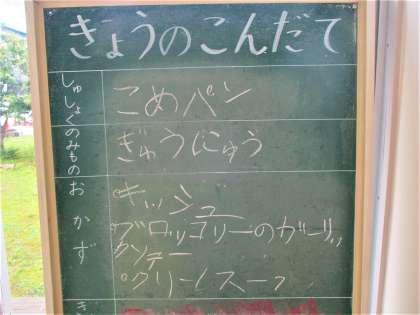 きょうのこんだて
しゅしょく
こめパン
のみもの
ぎゅうにゅう
おかず
キッシュ
ブロッコリーのガーリッ
クソテー
クリームスープ